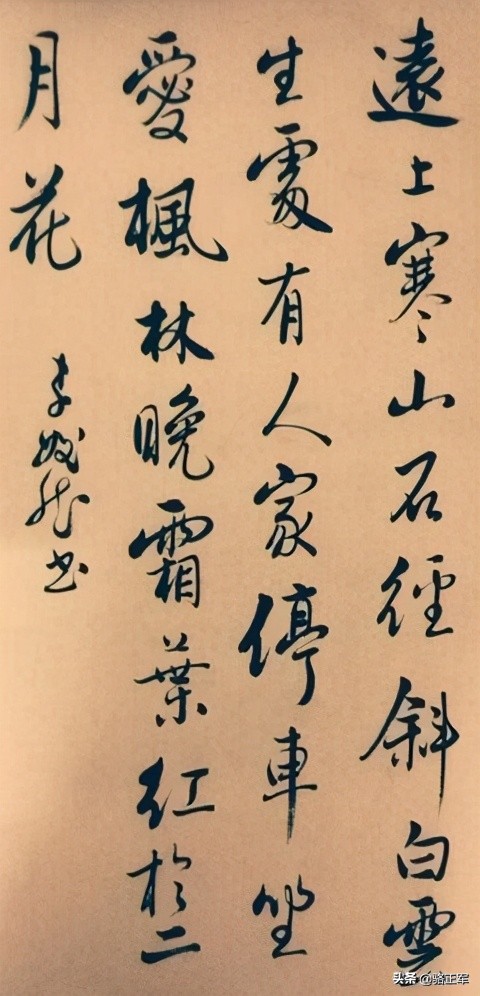 遠上寒山石徑斜白雲
生處有人家停車坐
愛楓林晚霜葉紅於二
月花
李 书
头条 @骆正军